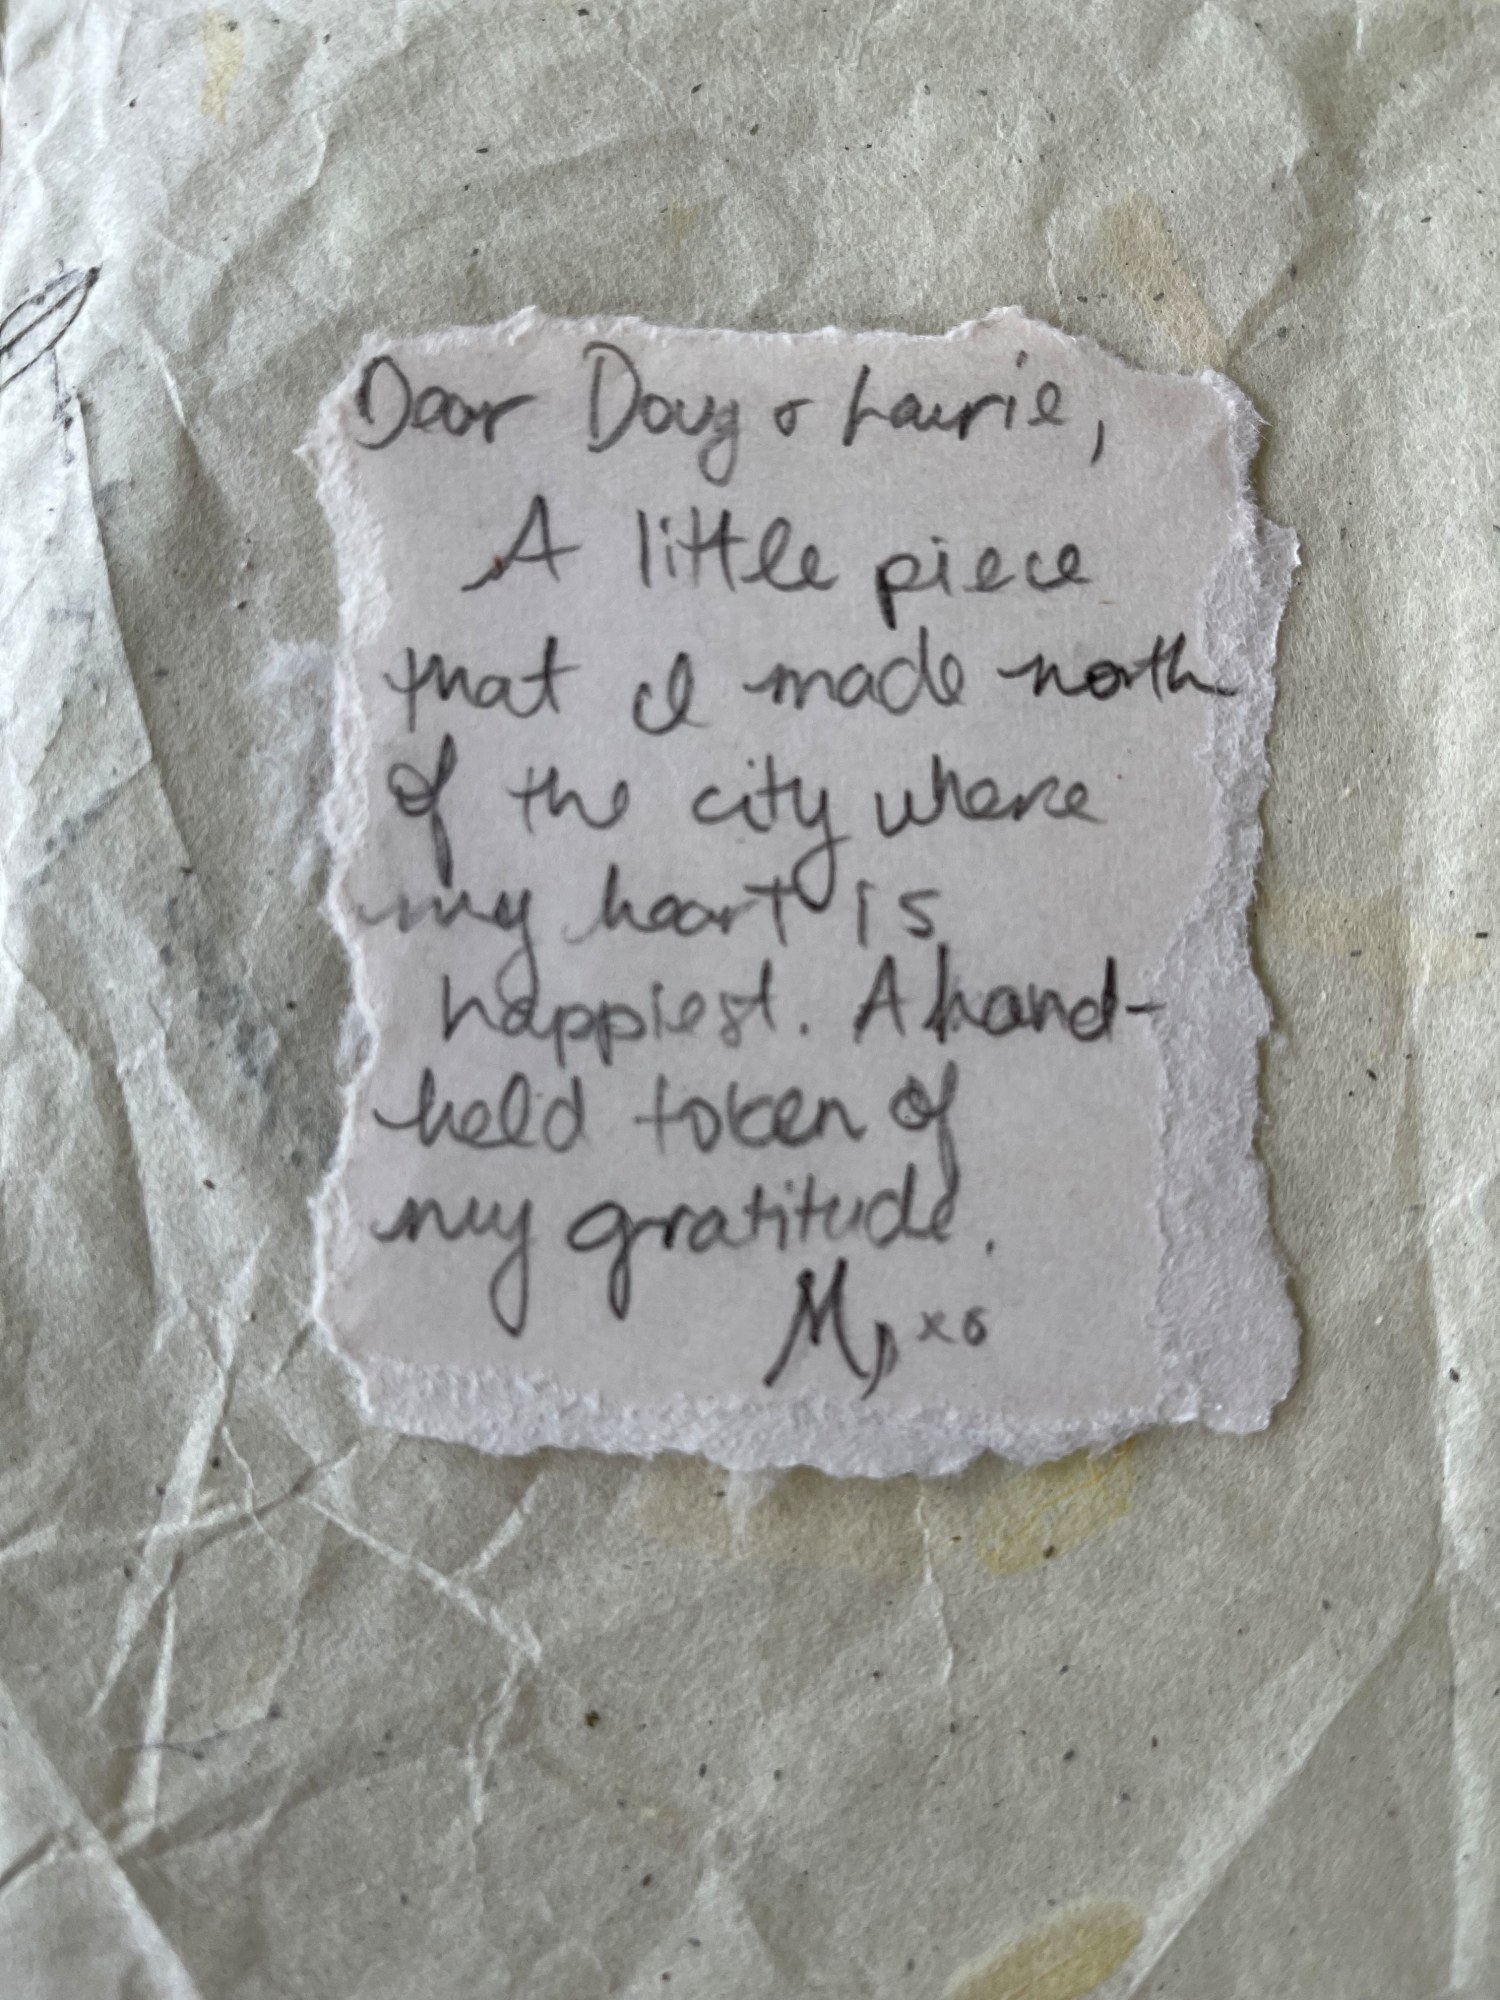 Dear Doug & Laurie,
A little piece
that I made north
of the city where
my heart is
happiest. A hand-
held token of
my gratitude.
M, xo